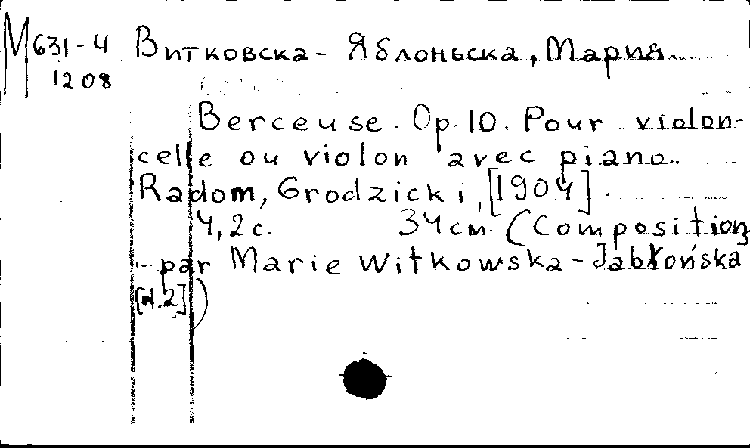 М 631-4 Витковска-Яблоньска, Мария
1208
Berceuse. Op. 10. Pour violon-
celle ou violon avec piano.
Radom, Grodzicki, [1904].
4, 2 с. 34 см (Composition
par Marie Witkowska-Jabłońska
[N.2])